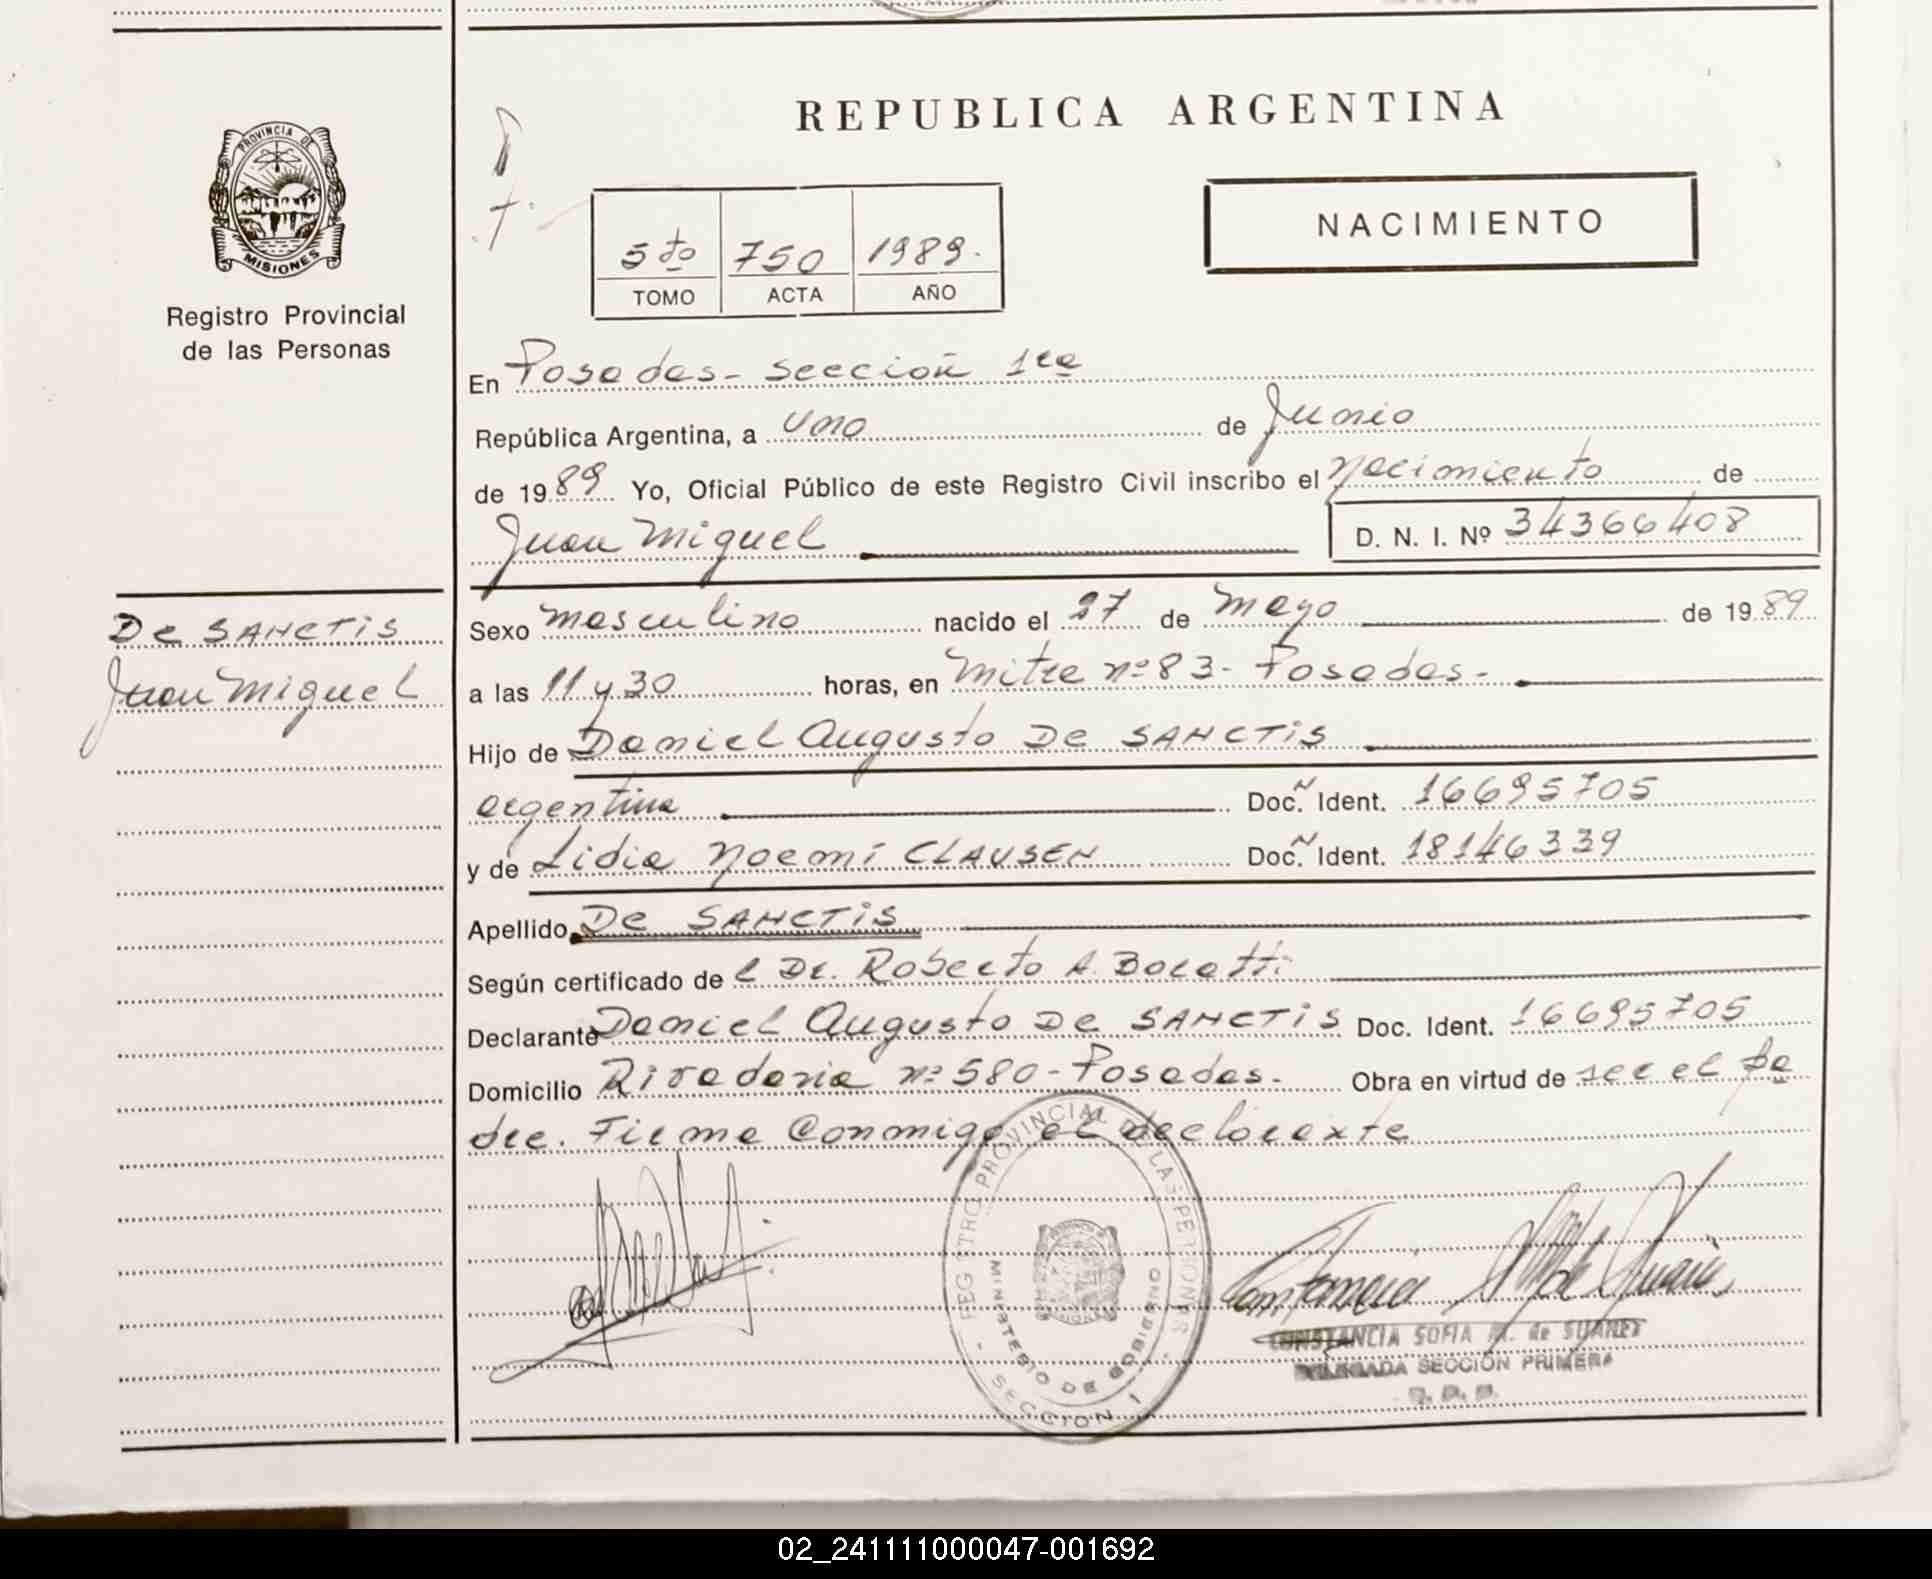 REPUBLICA ARGENTINA
PROVINCIA DE
MISIONES
Registro Provincial
de las Personas
5to 750 1989.
TOMO ACTA AÑO
NACIMIENTO
En Posadas - sección 1ra
República Argentina, a uno de Junio
de 1989 Yo, Oficial Público de este Registro Civil inscribo el nacimiento de
Juan Miguel D. N. I. Nº 34366408
De SANCTIS
Juan Miguel
Sexo masculino nacido el 27 de mayo de 1989
a las 11 y 30 horas, en Mitre nº 83 - Posadas.-
Hijo de Daniel Augusto De SANCTIS
argentina Doc. Ident. 16695705
y de Lidia Noemí CLAUSEN Doc. Ident. 18146339
Apellido De SANCTIS
Según certificado de l Dr. Roberto A.
Declarante Daniel Augusto De SANCTIS Doc. Ident. 16695705
Domicilio Rivadavia nº 580 - Posadas. Obra en virtud de ser el pa
dre. Firma Conmigo el declarante
REGISTRO PROVINCIAL DE LAS PERSONAS
MINISTERIO DE GOBIERNO
- SECCION 1 -
CONSTANCIA SOFIA M. de SUAREZ
DELEGADA SECCIÓN PRIMERA
02_241111000047-001692